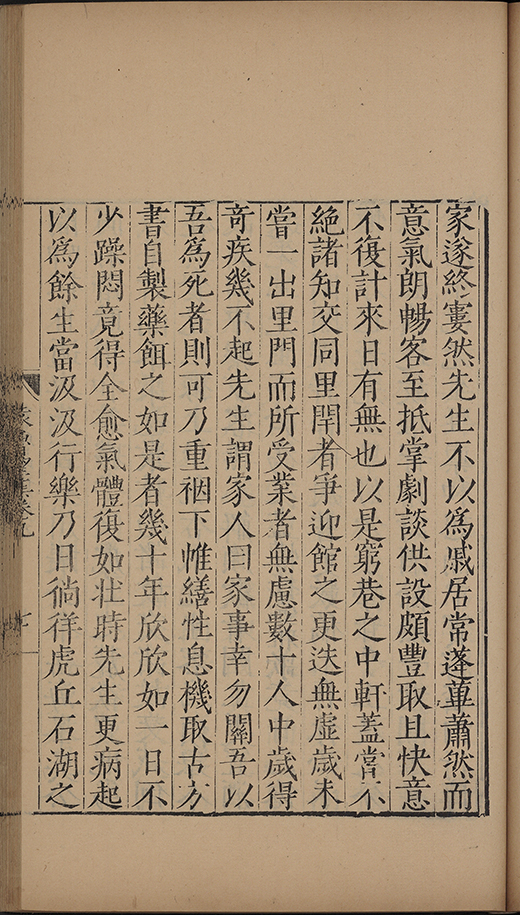 家遂終窶然先生不以為戚居常蓬蓽蕭然而
意氣朗暢客至抵掌劇談供設頗豐取且快意
不復計來日有無也以是窮巷之中軒蓋嘗不
絕諸知交同里閈者爭迎館之更迭無虛歲未
嘗一出里門而所受業者無慮數十人中歲得
奇疾幾不起先生謂家人曰家事幸勿關吾以
吾為死者則可乃重裀下帷繕性息機取古方
書自製藥餌之如是者幾十年欣欣如一日不
少躁悶竟得全愈氣體復如壯時先生更病起
以為餘生當汲汲行樂乃日徜徉虎丘石湖之